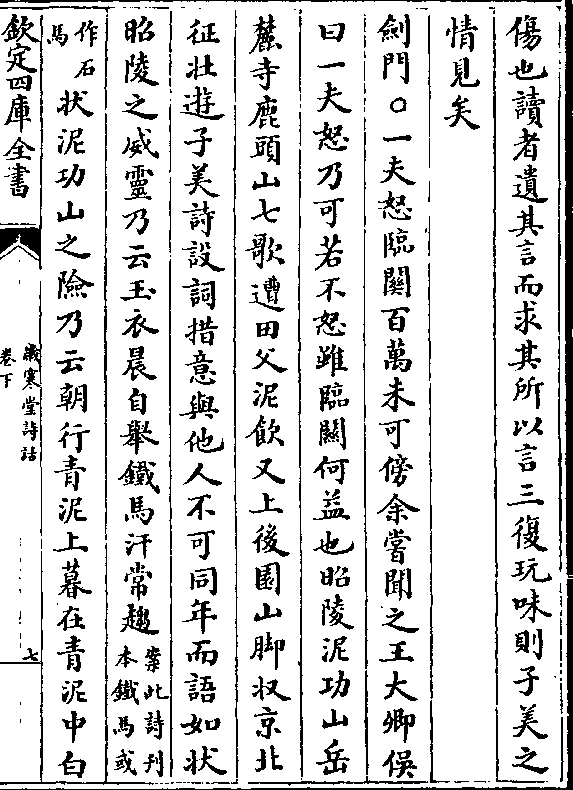 傷也讀者遺其言而求其所以言三復玩味則子美之
情見矣
劍門○一夫怒臨關百萬未可傍余嘗聞之王大卿俁
曰一夫怒乃可若不怒雖臨關何益也昭陵泥功山岳
麓寺鹿頭山七歌遭田父泥飲又上後園山脚收京北
征壯遊子美詩設詞措意與他人不可同年而語如狀
昭陵之威靈乃云玉衣晨自舉鐵馬汗常趨案此詩刋
本鐵馬或
作石
馬狀泥功山之險乃云朝行青泥上暮在青泥中白
欽定四庫全書
歳寒堂詩話
卷下
七